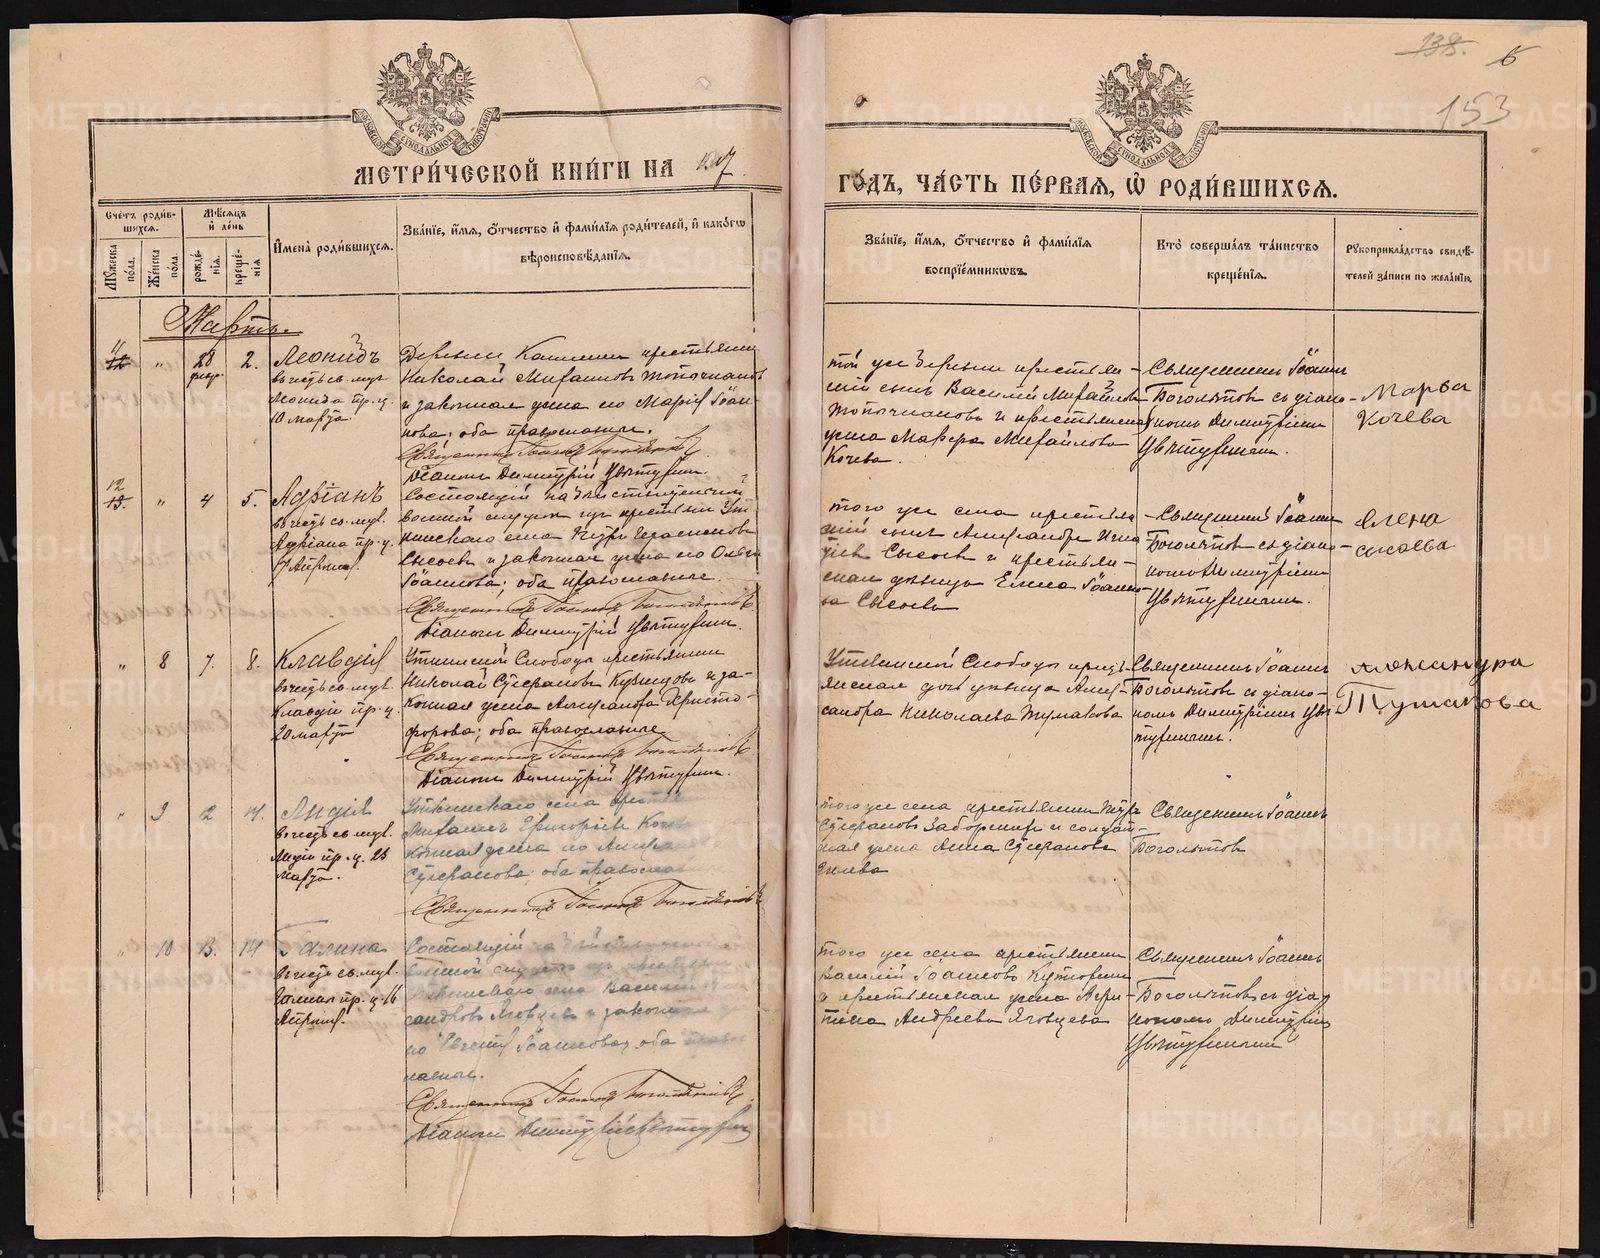 138.
6
153
МЕТРИ́ЧЕСКОЙ КНИ́ГИ НА 1907
ГО́ДЪ, ЧА́СТЬ ПЕ́РВАЯ, Ѽ РОДИ́ВШИХСЯ.
Сче́тъ роди́в-
шихся.
Мѣ́сяцъ
и҆ де́нь
Мꙋ́жеска
по́ла.
Же́нска
по́ла.
рожде́-
нїя.
креще́-
нїя
И҆мена̀ роди́вшихся.
Зва́нїе, и҆́мя, ѻ҆́тчество и҆ фами́лїя роди́телей, и҆ како́гѡ
вѣроисповѣ́данїя.
Зва́нїе, и҆́мя, ѻ҆́тчество и҆ фами́лїя
воспрїе́мникѡвъ.
Кто̀ соверша́лъ та́инство
креще́нїя.
Рꙋкоприкла́дство свидѣ́-
телей за́писи по жела́нїю.
Мартъ.
11
12 " 28 2. Леонидъ
февр.
въ честь св. муч.
Леонида пр. ц.
10 марта.
Деревни крестьянинъ
Николай Михаиловъ Топочкановъ
и законная жена его Марія Іоан-
нова, оба православные.
Священникъ Іоаннъ Боголѣповъ
Діаконъ Димитрій Цвѣтухинъ.
той же деревни крестьян-
скій сынъ Василій Михайловъ
Топочкановъ и крестьянская
жена Мавра Михайлова
Кочева.
Священникъ Іоаннъ
Боголѣповъ съ діако-
номъ Димитріемъ
Цвѣтухинымъ.
Марѳа
Кочева
12
13. " 4 5. Адріанъ
въ честь св. муч.
Адріана пр. ц.
Апрѣля.
Состоящій на дѣйствительной
военной службѣ изъ крестьянъ Ут-
кинскаго села Петръ Герасимовъ
Сысоевъ и законная жена его Ольга
Іоаннова; оба православные.
Священникъ Іоаннъ Боголѣповъ
Діаконъ Димитрій Цвѣтухинъ.
того же села крестьян-
скій сынъ Александръ Игна-
тіевъ Сысоевъ и крестьян-
ская дѣвица Елена Іоанно-
ва Сысоева
Священникъ Іоаннъ
Боголѣповъ съ діако-
номъ Димитріемъ
Цвѣтухинымъ.
Елена
Сысоева
" 8 7. 8. Клавдія
въ честь св. муч.
Клавдіи пр. ц.
20 марта
Уткинской Слободы крестьянинъ
Николай Стефановъ Кузнецовъ и за-
конная жена Александра Христо-
форова; оба православные.
Священникъ Іоаннъ Боголѣповъ
Діаконъ Димитрій Цвѣтухинъ.
Уткинской Слободы кресть-
янская дочь дѣвица Алек-
сандра Николаева Тумакова
Священникъ Іоаннъ
Боголѣповъ съ діако-
номъ Димитріемъ Цвѣ-
тухинымъ.
Александра
Тумакова
" 9 2 14. Лидія
въ честь св. муч.
Лидіи пр. ц. 23
марта.
Уткинскаго села
Михаилъ Григорьевъ
конная жена его Александра
Стефанова; оба православные
Священникъ Іоаннъ Боголѣповъ
того же села крестьянинъ Петръ
Стефановъ и солдат-
ская жена Анна Стефанова
Священникъ Іоаннъ
Боголѣповъ
" 10 13. 14 Галина
въ честь св. муч.
Галины пр. ц. 16
Апрѣля.
Состоящій на дѣйствительной
военной службѣ изъ крестьянъ
Уткинскаго села Василій
Яговцевъ и законная
его Евгенія Іоаннова, оба право-
славные.
Священникъ Іоаннъ Боголѣповъ
Діаконъ Димитрій Цвѣтухинъ
того же села крестьянинъ
Василій Іоанновъ
и крестьянская жена Агри-
пина Андреева Яговцева
Священникъ Іоаннъ
Боголѣповъ съ діа-
кономъ Димитріемъ
Цвѣтухинымъ
METRIKI.GASO-URAL.RU